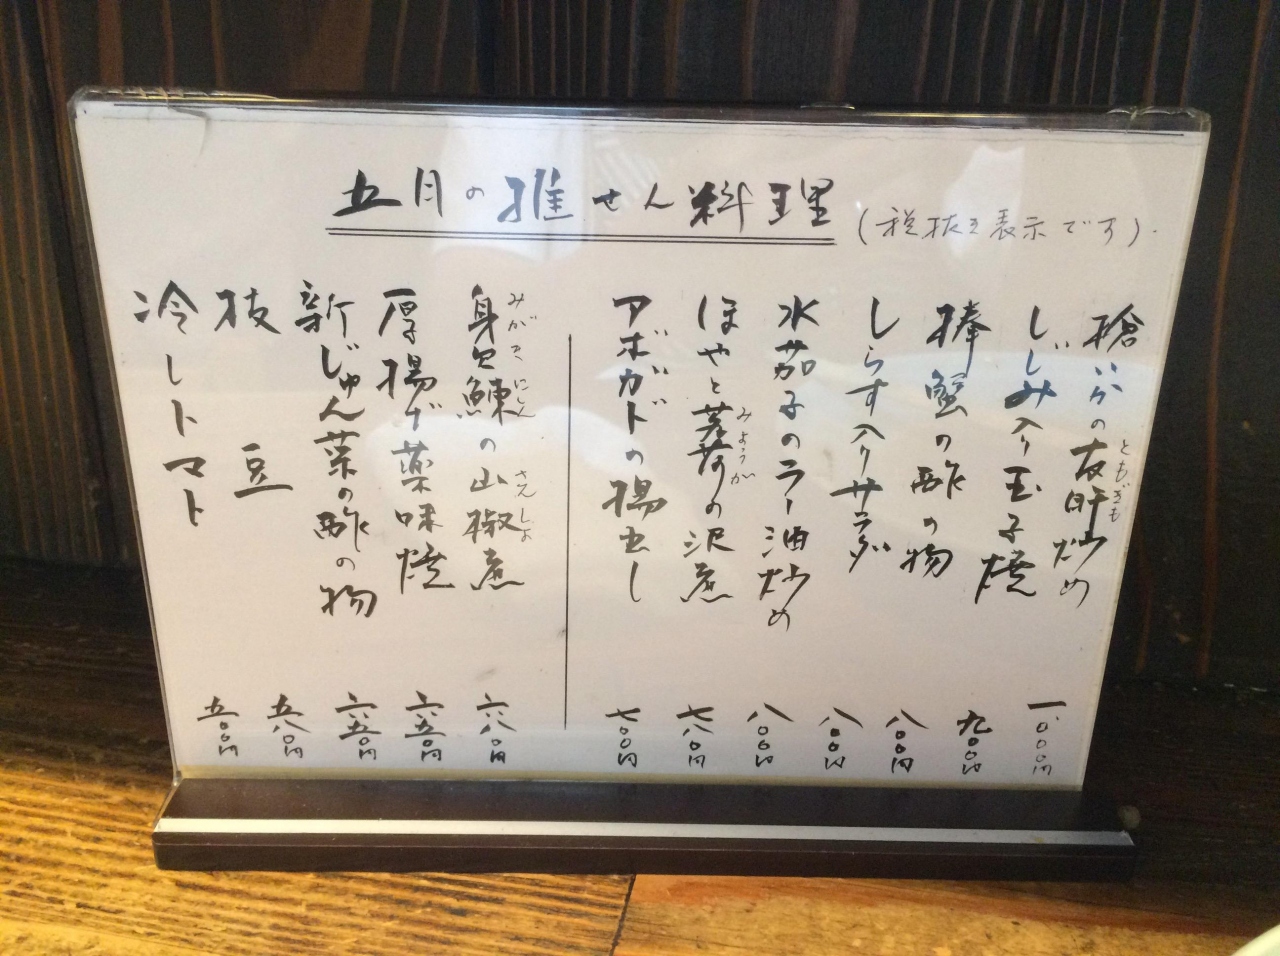 五月の推せん料理
(税抜き表示です).
槍いかの友肝炒め 一、〇〇〇円
ともぎも
しじみ入り玉子焼 九〇〇円
棒蟹の酢の物 八〇〇円
しらす入りサラダ 八〇〇円
水茄子のラー油炒め 八〇〇円
ほやと茗荷の沢煮 七八〇円
みょうが
アボガドの揚出し 七〇〇円
身欠鰊の山椒煮 六八〇円
みがきにしん さんしょ
厚揚げ薬味焼 六五〇円
新じゅん菜の酢の物 六五〇円
枝豆 五八〇円
冷しトマト 五〇〇円